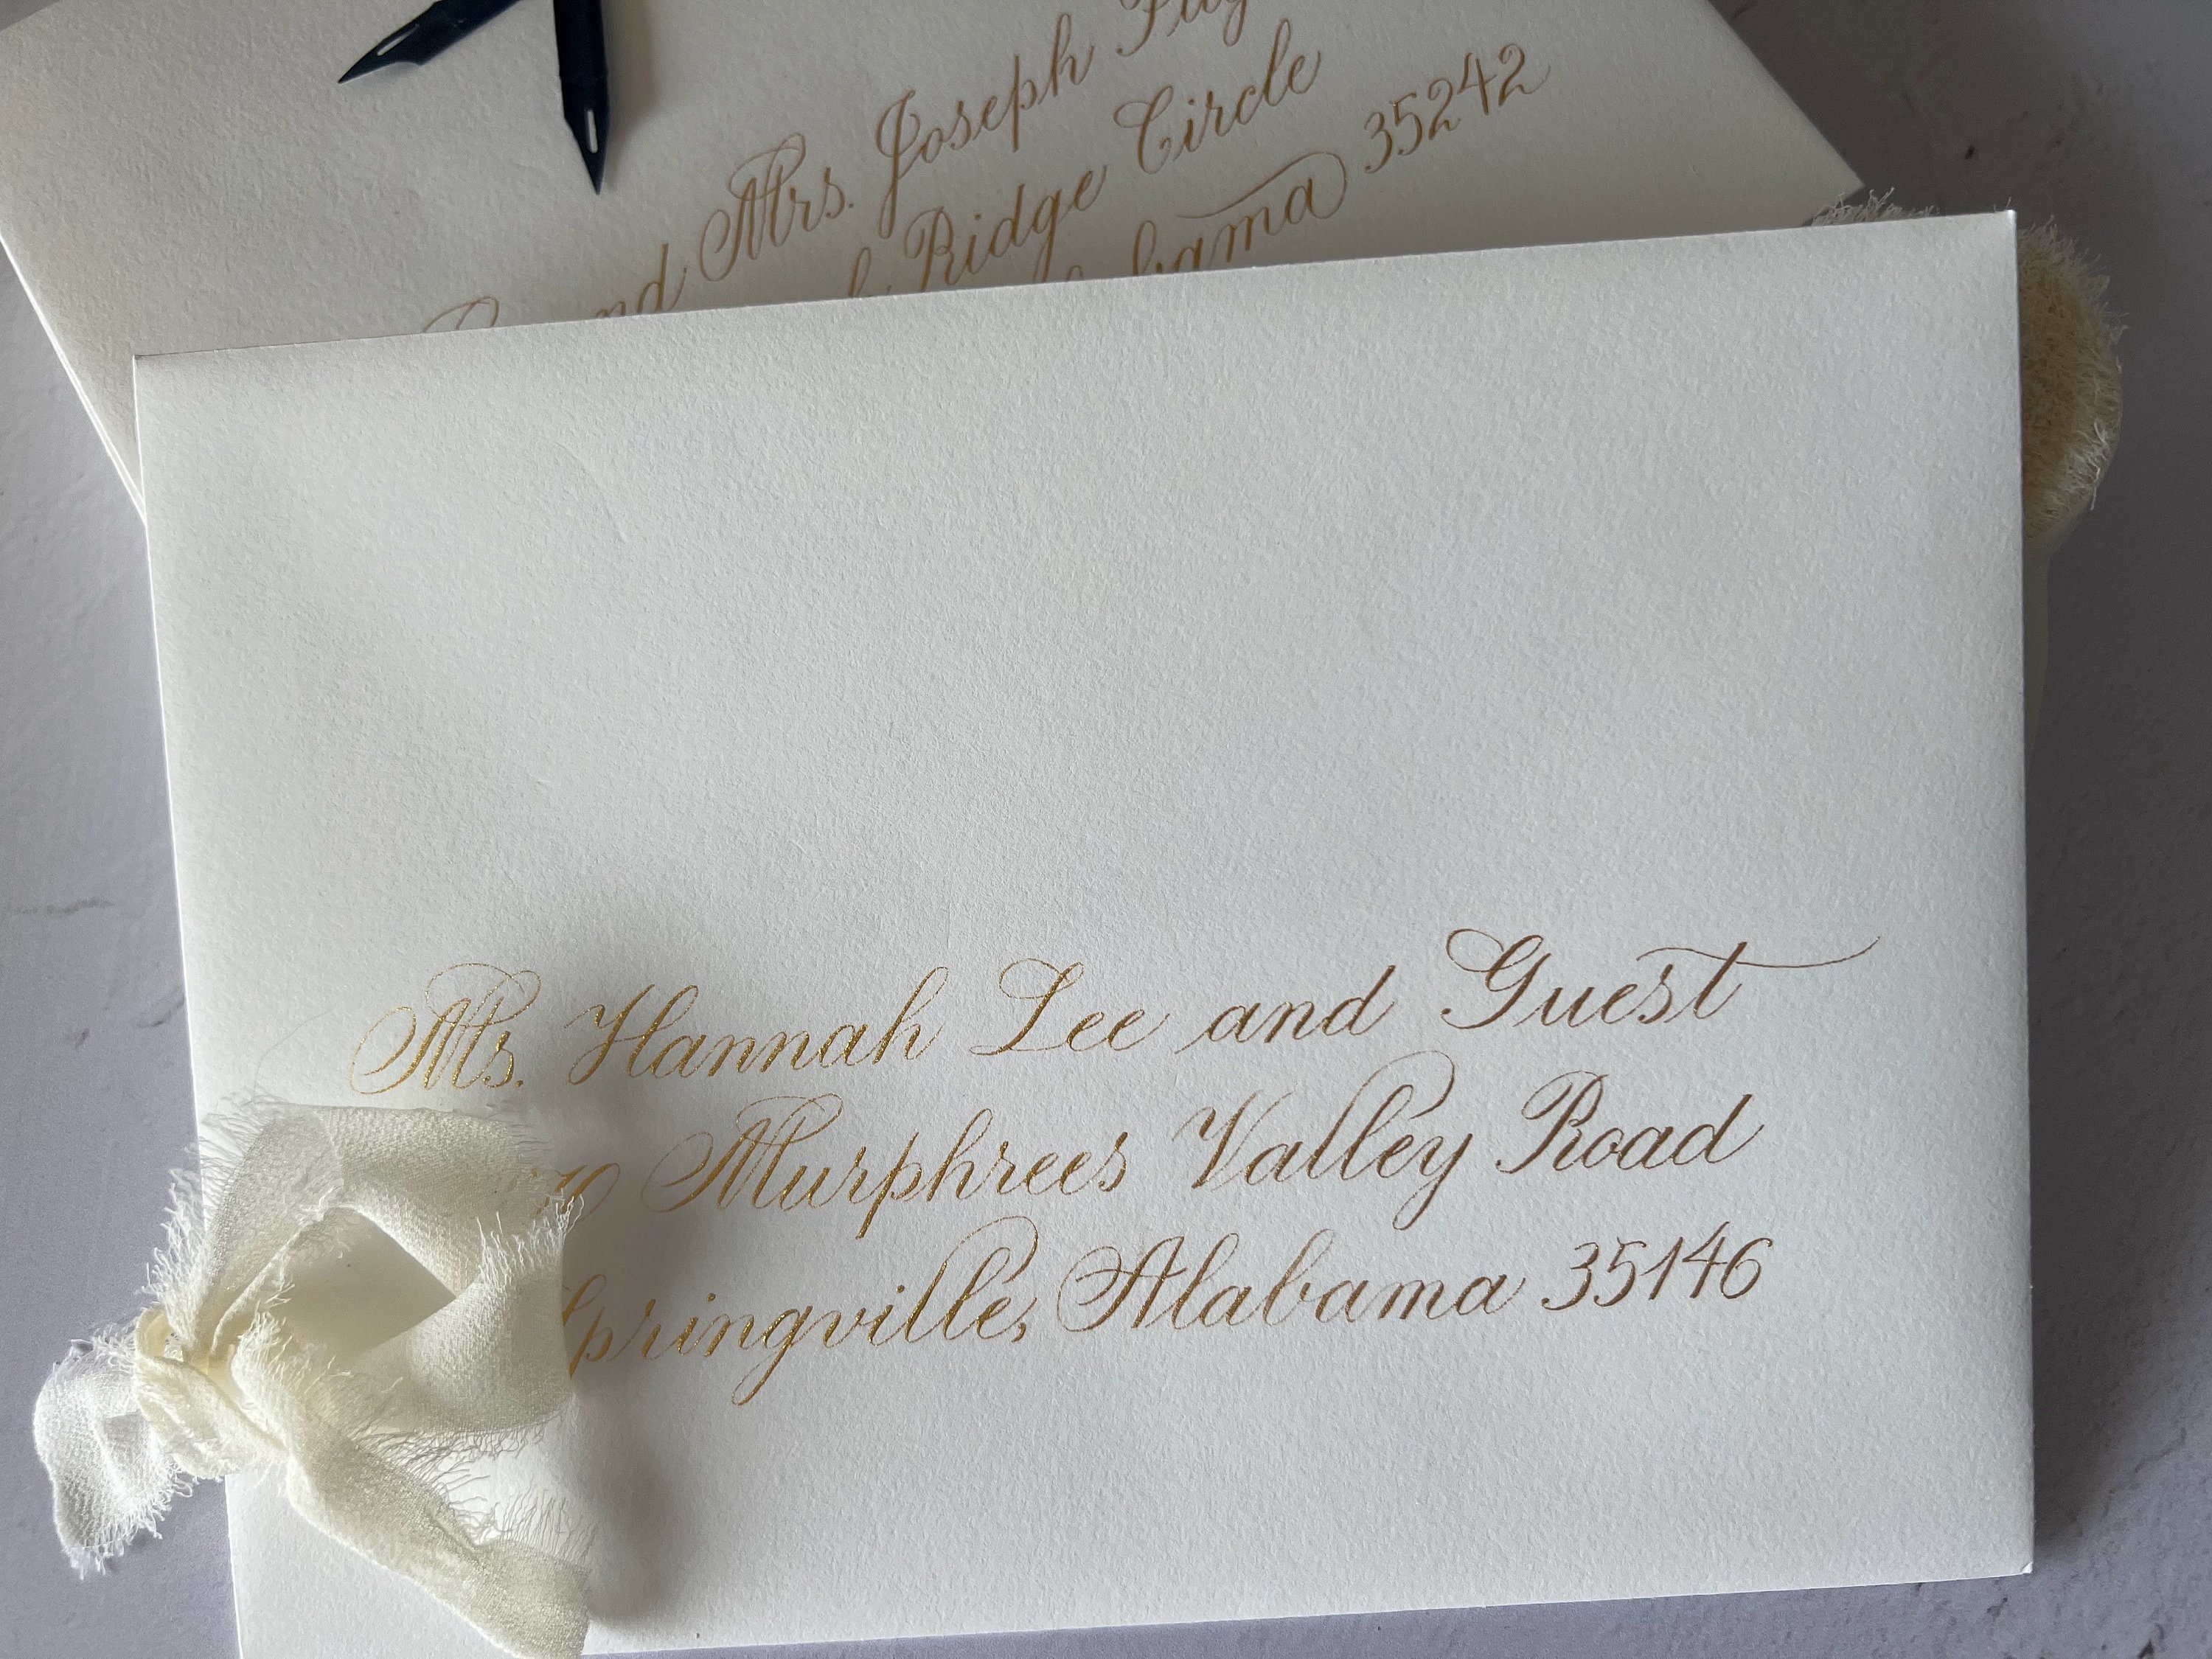 and Mrs. Joseph
Ridge Circle
35242
Ms. Hannah Lee and Guest
Murphrees Valley Road
Springville, Alabama 35146